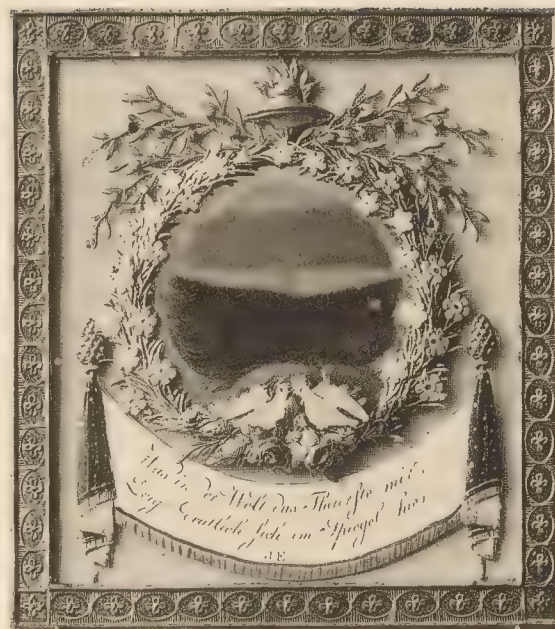 Was in der Welt das Theuerste mir,
Zeigt deutlich sich im Spiegel hier
J E